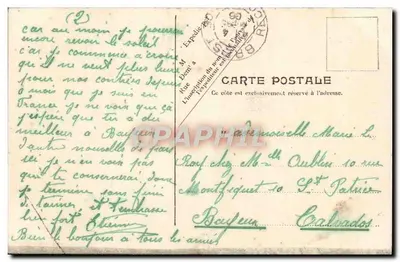 (2)
car au moin je pourrai
encore revoir le soleil
car je commence a croire
qu'il ne veut plus luire
pour nos contrées depuis
à mois que je suis en
France je ne vois que ça
j'espère que tu a du
meilleur à Bayeux
d'autre nouvelle de plus
je n'en vois pas
qui te conservera donc
je termine sans finir
de t'aimer et t'embrasse
bien fort Etienne
Bien le bonjour à tous les amies
M
Demt à
Rue
BREST
CARTE POSTALE
Ce côté est exclusivement réservé à l'adresse.
CPAPHIL
Mademoiselle Marie Le
Roy chez Mlle Oublin 10 rue
Montfiquet 10 St Patrice
Bayeux Calvados